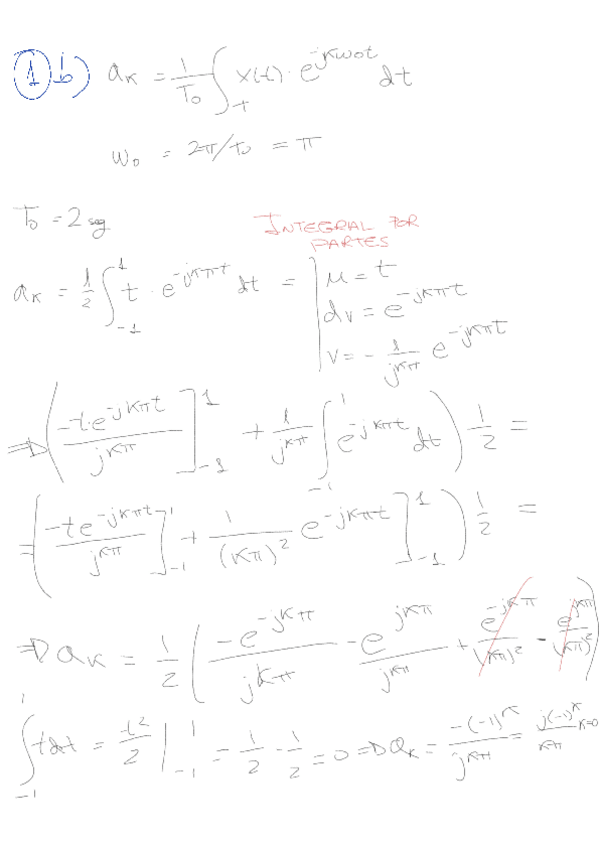 ① b) aₖ = 1/T₀ ∫_T x(t) · e^{-jkω₀t} dt
ω₀ = 2π/t₀ = π
T₀ = 2 seg
INTEGRAL POR PARTES
aₖ = 1/2 ∫_{-1}^{1} t · e^{-jkπt} dt = | u = t
dv = e^{-jkπt}
v = - 1/jkπ e^{-jkπt}
⇒ ( -t·e^{-jkπt}/jkπ ]_{-1}^{1} + 1/jkπ ∫_{-1}^{1} e^{-jkπt} dt ) 1/2 =
= ( -te^{-jkπt}/jkπ ]_{-1}^{1} + 1/(kπ)² e^{-jkπt} ]_{-1}^{1} ) 1/2 =
⇒ aₖ = 1/2 ( -e^{-jkπ}/jkπ - e^{jkπ}/jkπ + e^{-jkπ}/(kπ)² - e^{jkπ}/(kπ)² )
∫_{-1}^{1} t dt = t²/2 |_{-1}^{1} = 1/2 - 1/2 = 0 ⇒ aₖ = -(-1)^k/jkπ = j(-1)^k/kπ k=0